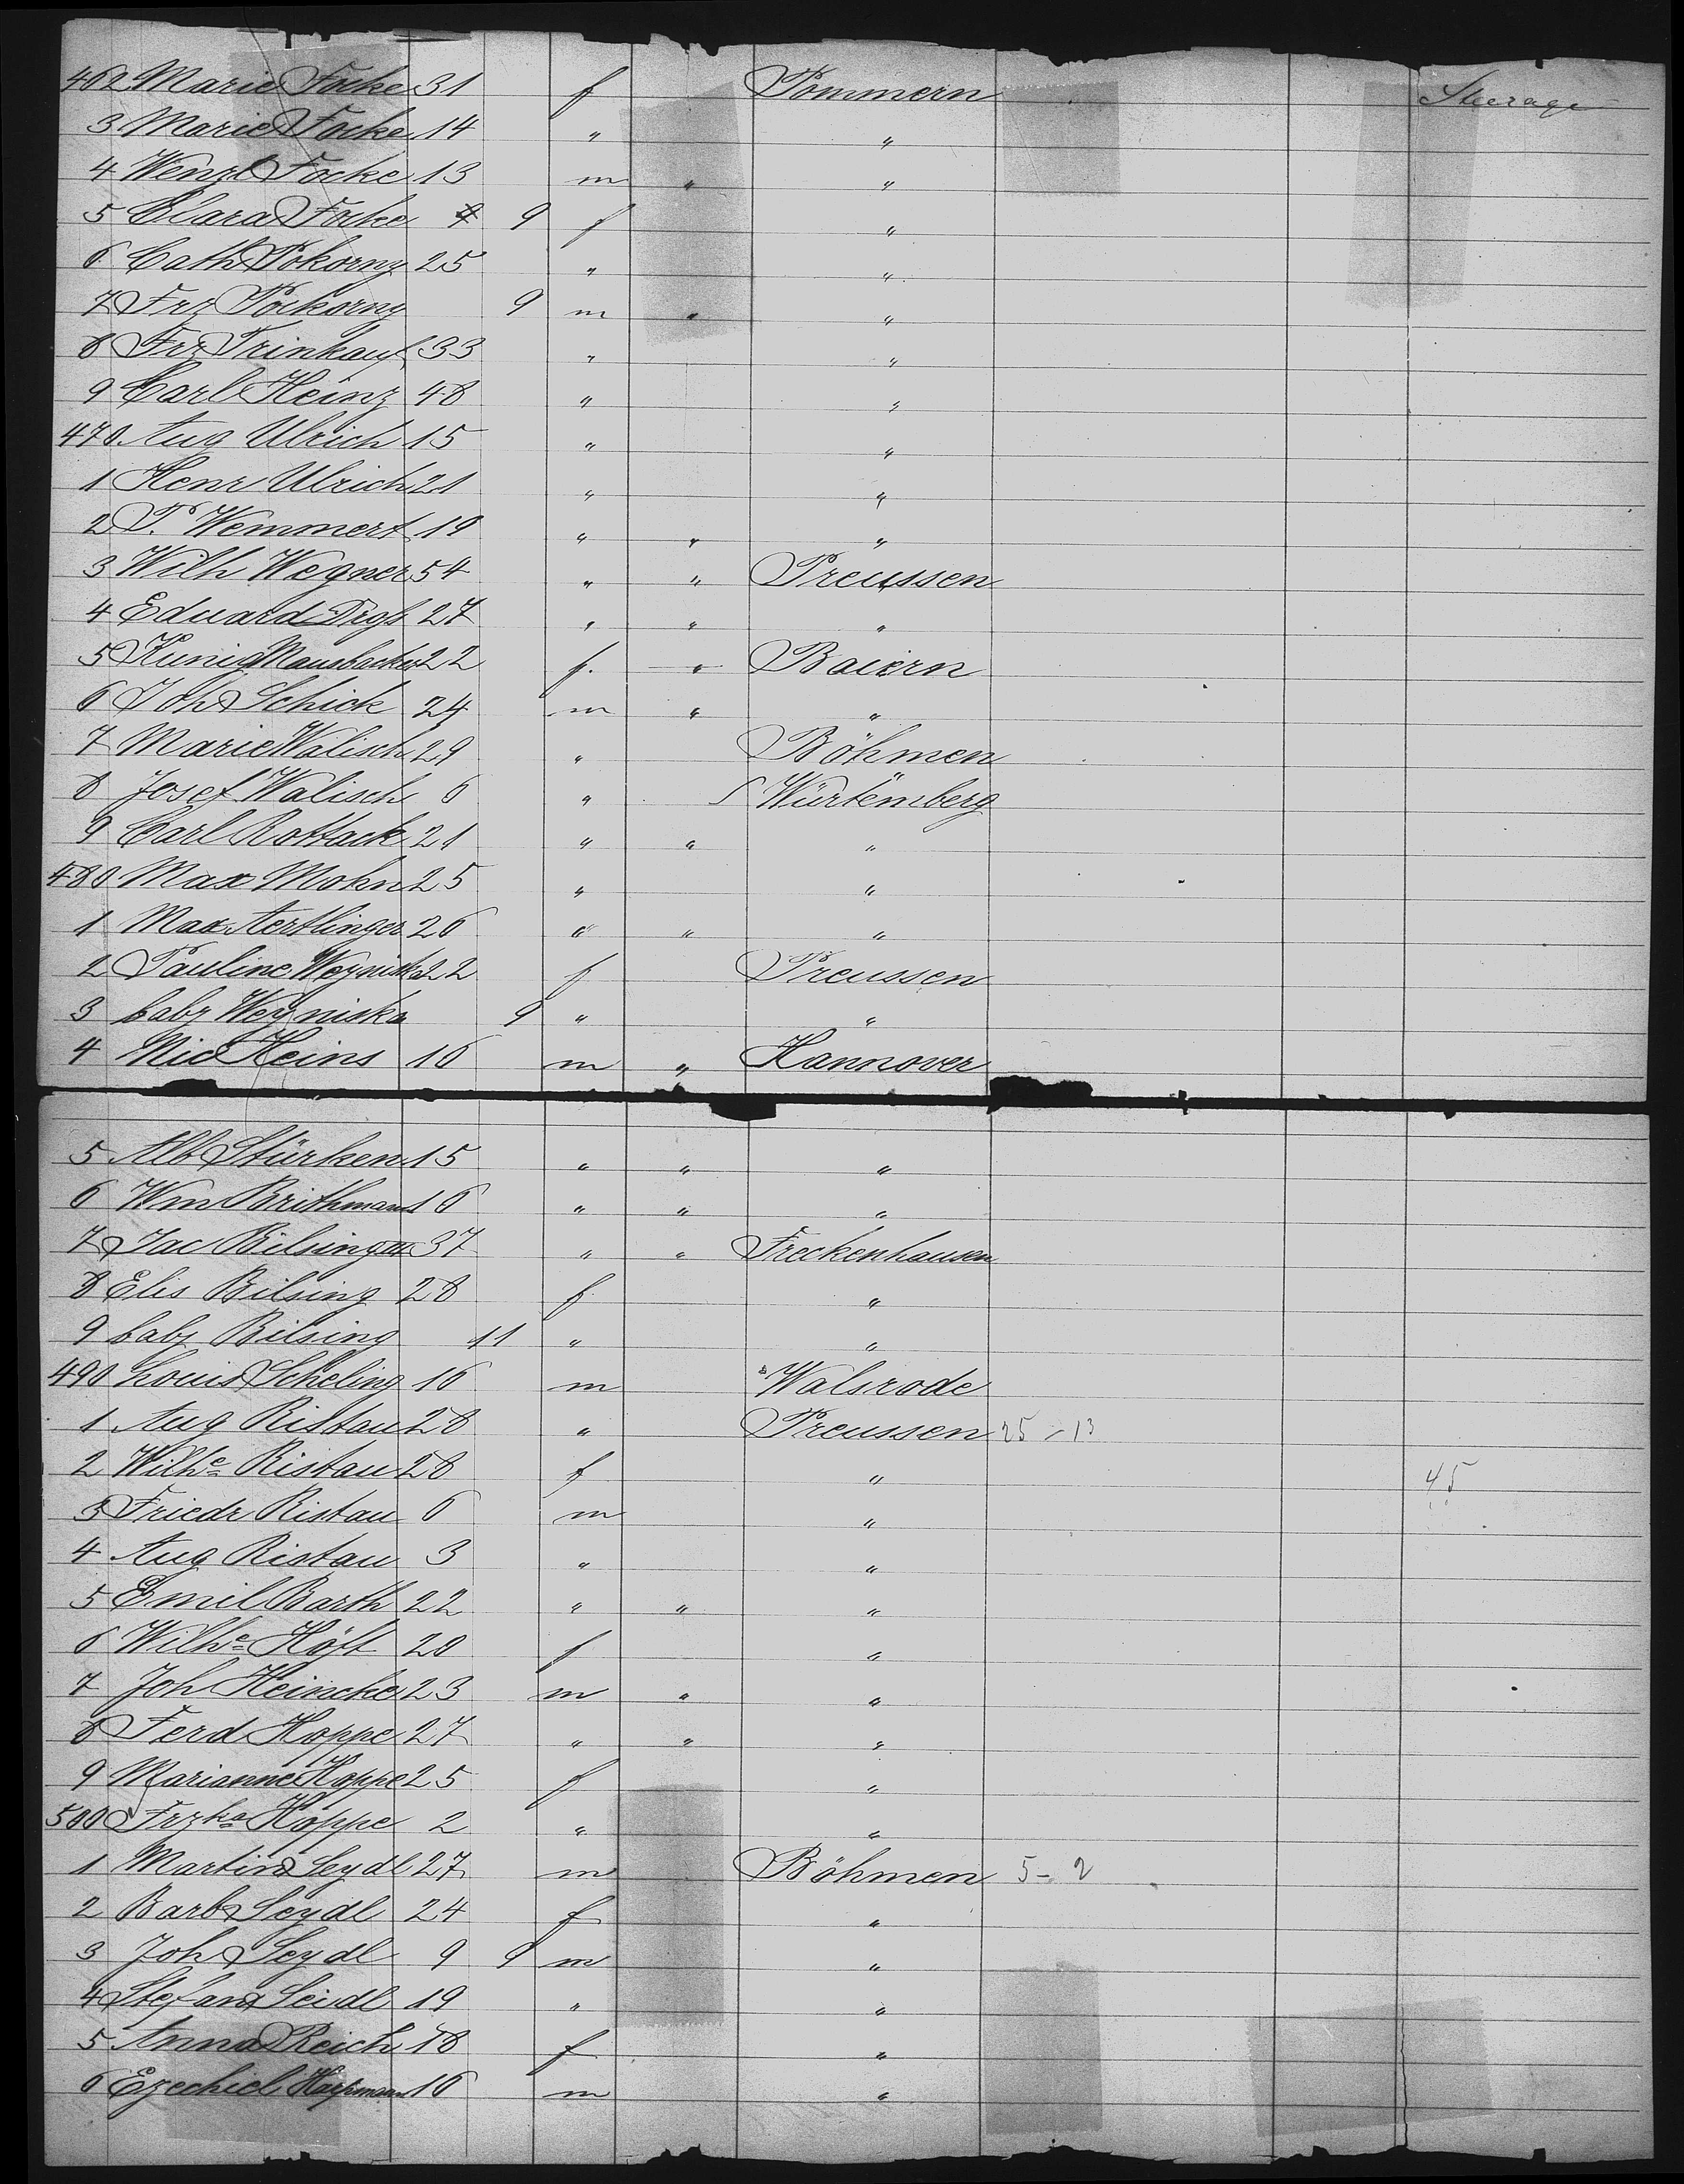 462 Marie Focke 31 f Pommern Steerage
3 Marie Focke 14 " "
4 Wenzl Focke 13 m " "
5 Clara Focke 9 f "
6 Cath Pokorny 25 " "
7 Frz Pockorny 9 m " "
8 Frz Trinkauf 33 " "
9 Carl Heinz 48 " "
470 Aug Ulrich 15 " "
1 Henr Ulrich 21 " "
2 P. Wemmert 19 " " "
3 Wilh Wegner 54 " " Preussen
4 Eduard 27 " " "
5 Kunig Mausbacher 22 f. " Baiern
6 Joh Schick 24 m " "
7 Marie Walisch 29 " Böhmen
8 Josef Walisch 6 " Würtemberg
9 Carl Rottack 21 " " "
480 Max Mohn 25 " "
1 Max Aertlinger 26 " " "
2 Pauline Weyniska 22 f Preussen
3 baby Weyniska 9 " "
4 Nic Heins 16 m " Hannover
5 Alb Stürken 15 " " "
6 Wm Brithmann 16 " " "
7 Jac Bilsing 37 " " Freckenhausen
8 Elis Bilsing 28 f "
9 baby Bilsing 11 " "
490 Louis Scheling 16 m Walsrode
1 Aug Ristau 28 " Preussen 25-13
2 Wilhe Ristau 28 f " 45
3 Friedr Ristau 6 m "
4 Aug Ristau 3 " "
5 Emil Barth 22 " " "
6 Wilhe Höft 20 f "
7 Joh Heincke 23 m " "
8 Ferd Hoppe 27 " " "
9 Marianne Hoppe 25 f "
500 Frzka Hoppe 2 " "
1 Martin Seydl 27 m Böhmen 5-2
2 Barb Seydl 24 f "
3 Joh Seydl 9 9 m "
4 Stefan Seidl 19 " "
5 Anna Reich 18 f "
6 Ezechiel 16 m "